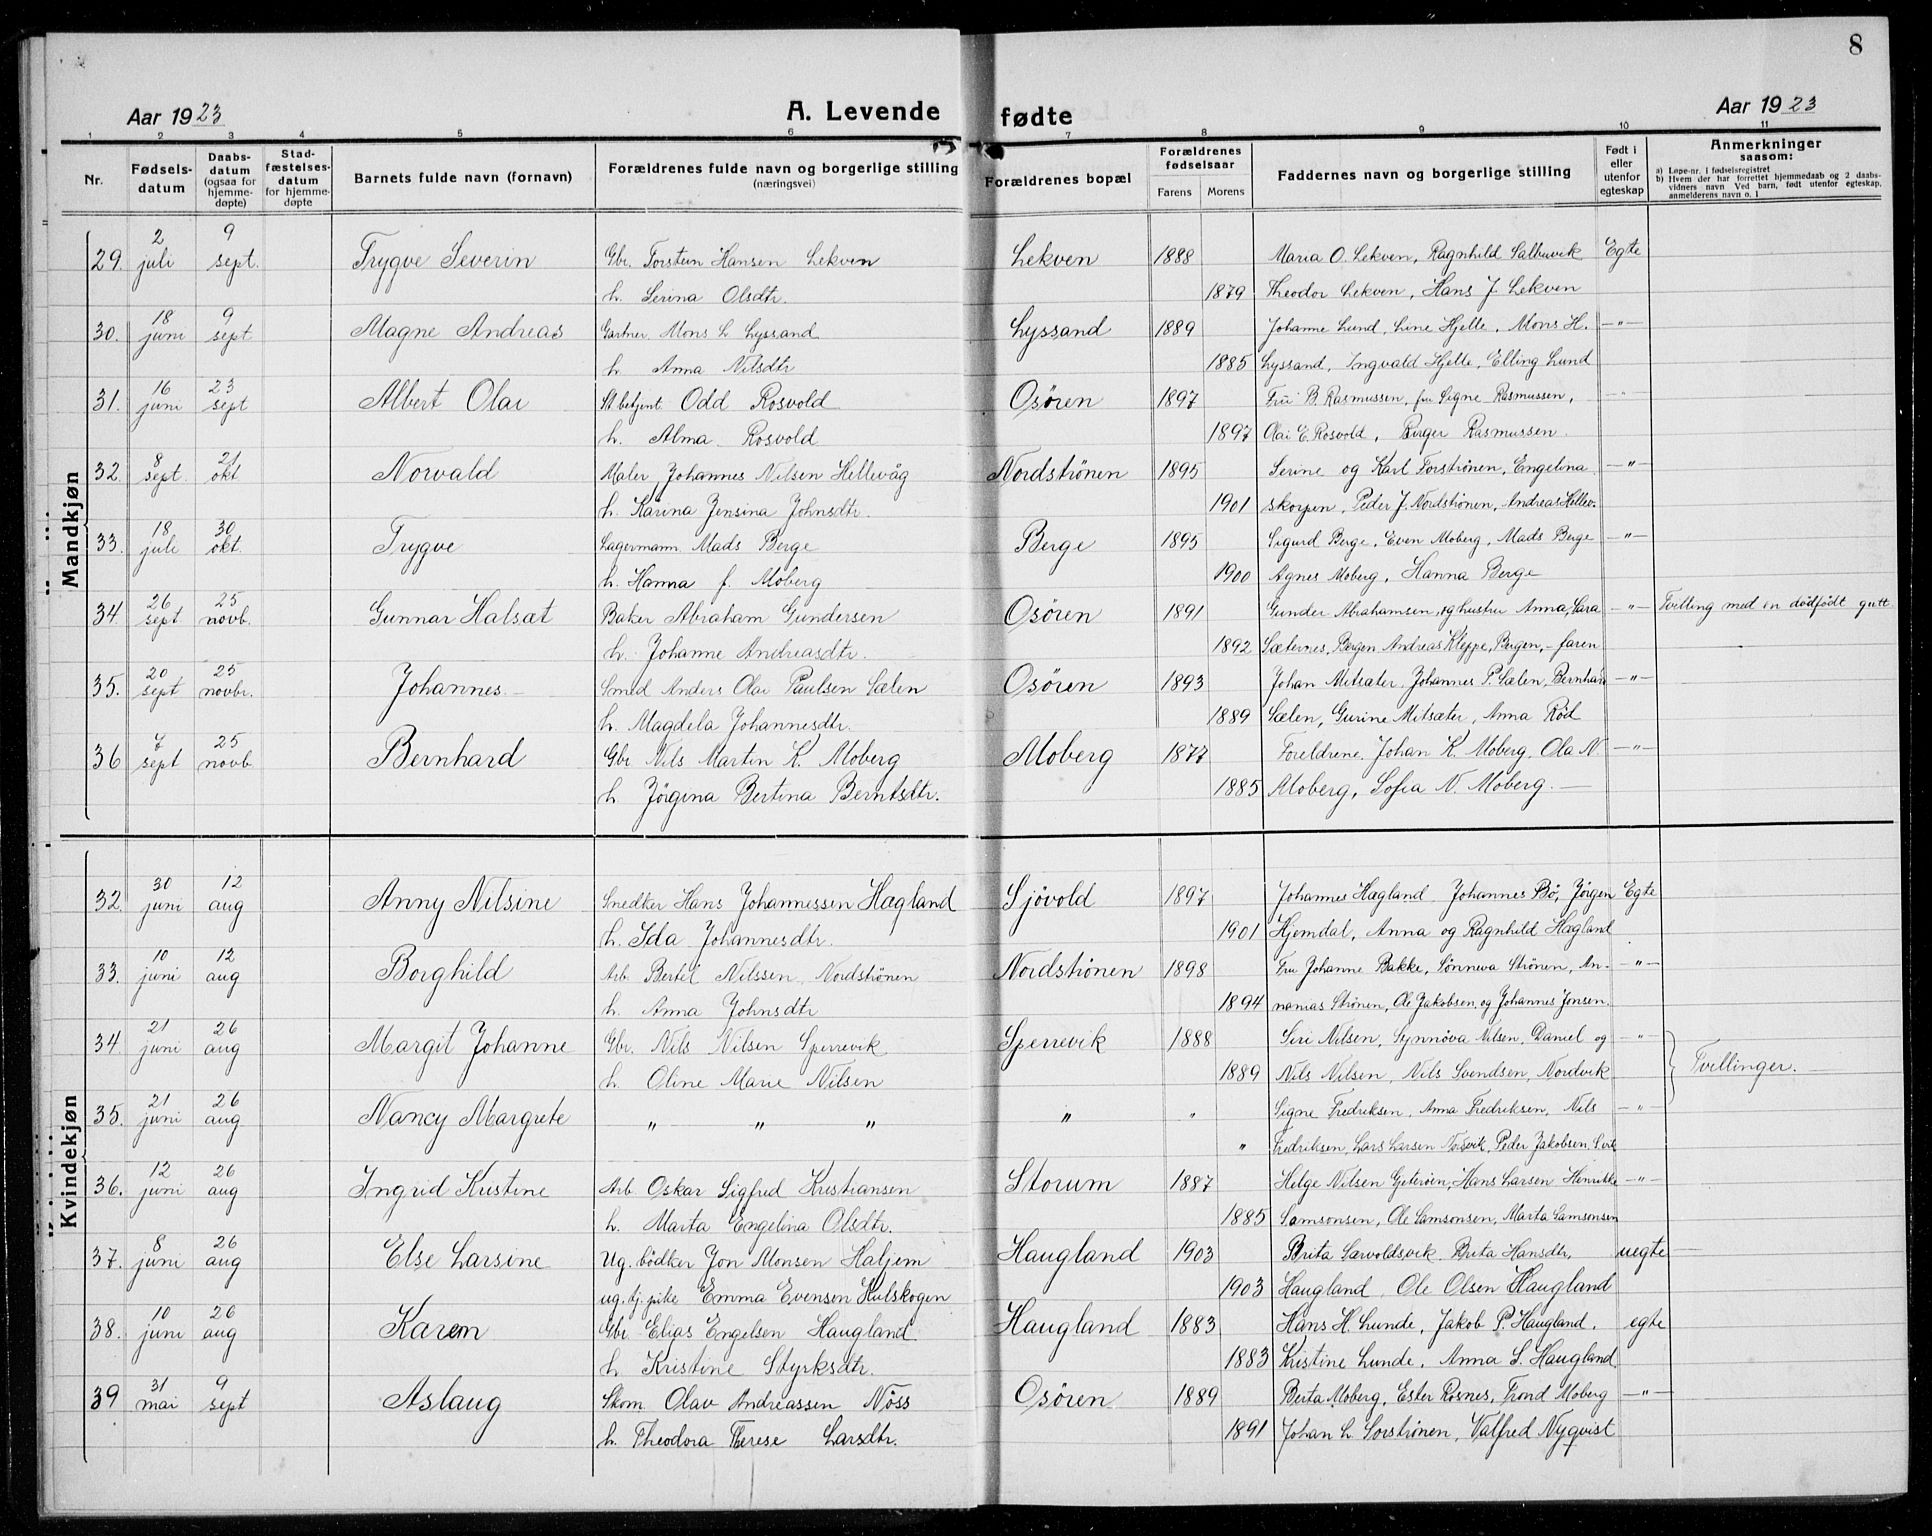 8
Aar 1923 A. Levende fødte Aar 1923
1 2 3 4 5 6 7 8 9 10 11
Nr. Fødselsdatum Daabsdatum (ogsaa for hjemmedøpte) Stadfæstelsesdatum for hjemmedøpte Barnets fulde navn (fornavn) Forældrenes fulde navn og borgerlige stilling (næringsvei) Forældrenes bopæl Forældrenes fødselsaar Farens Morens Faddernes navn og borgerlige stilling Født i eller utenfor egteskap Anmerkninger saasom: a) Løpe-nr. i fødselsregistret b) Hvem der har forrettet hjemmedaab og 2 daabsvidners navn Ved barn, født utenfor egteskap, anmelderens navn o. l
Mandkjøn
29. 2 juli 9 sept. Trygve Severin Gbr. Torstein Hansen Lekven Lekven 1888 Maria O. Lekven, Ragnhild Salbuvik Egte
h. Serina Olsdtr. 1879 Theodor Lekven, Hans J. Lekven
30. 18 juni 9 sept Magne Andreas Gartner Mons L. Lyssand Lyssand 1889 Johanne Lund, Line Hjelle, Mons H. -"-
h. Anna Nilsdtr 1885 Lyssand, Ingvald Hjelle, Elling Lund
31. 16 juni 23 sept Albert Olai St.betjent. Odd Rosvold Osøren 1897 Fru B. Rasmussen, fru Signe Rasmussen, -"-
h. Alma Rosvold 1897 Olai E. Rosvold, Birger Rasmussen.
32. 8 sept. 21 okt Norvald Maler Johannes Nilsen Hellevåg Nordstrønen 1895 Serine og Karl Forstrønen, Engelina -"-
h. Karina Jensina Johnsdtr. 1901 Skorpen, Peder J. Nordstrønen, Andreas Hellev.
33. 18 juli 30 okt. Trygve Lagermann. Mads Berge Berge 1895 Sigurd Berge, Even Moberg, Mads Berge -"-
h. Hanna f. Moberg 1900 Agnes Moberg, Hanna Berge
34. 26 sept 25 novb. Gunnar Halsat Baker Abraham Gundersen Osøren 1891 Gunder Abrahamsen, og hustru Anna, Sara -"- Tvilling med en dödfödt gutt.
h. Johanne Andreasdtr. 1892 Sælevnes, Bergen Andreas Kleppe, Bergen, - faren
35. 20 sept 25 novbr. Johannes. Smed Anders Olai Paulsen Sælen Osøren 1893 Johan Mitsæter, Johannes P. Sælen, Bernhard -"-
h. Magdela Johannesdtr. 1889 Sælen, Gurine Mitsæter, Anna Röd
36 7 sept 25 novb Bernhard Gbr Nils Martin K. Moberg Moberg 1877 Foreldrene, Johan K. Moberg, Ola N. -"-
h Jørgina Bertina Berntsdtr. 1885 Moberg, Sofia N. Moberg.
Kvindekjøn
32. 30 juni 12 aug Anny Nilsine Snedker Hans Johannessen Hægland Sjövold 1897 Johannes Hægland Johannes Bö, Jørgen Egte
h. Ida Johannesdtr. 1901 Hjemdal, Anna og Ragnhild Hægland
33. 10 juni 12 aug Borghild Arb. Bertel Nilssen Nordstrønen Nordstrønen 1898 Fru Johanne Bakke, Sønneva Strønen, An- -"-
h. Anna Johnsdtr 1894 nanias Strønen, Ole Jakobsen og Johannes Jonsen.
34. 21 juni 26 aug Margit Johanne Gbr. Nils Nilsen Sperrevik Sperrevik 1888 Siri Nilsen, Synnöva Nilsen, Daniel og -"-
h. Oline Marie Nilsen 1889 Nils Nilsen, Nils Svendsen, Nordvik Tvillinger.
35. 21 juni 26 aug Nancy Margrete " " " " " Signe Fredriksen, Anna Fredriksen, Nils -"-
" Fredriksen, Lars Larsen Peder Jakobsen
36. 12 juni 26 aug Ingrid Kristine Arb. Oskar Sigfred Kristiansen Storum 1887 Helge Nilsen Geterøen, Hans Larsen Henrikke -"-
h. Marta Engelina Olsdtr. 1885 Samsonsen, Ole Samsonsen, Marta Samsonsen
37. 8 juni 26 aug Else Larsine Ug. bödker Jon Monsen Haljem Haugland 1903 Brita Særvoldsvik. Brita Hansdtr. uegte
ug. tj. pike Emma Evensen Hulskogen 1903 Haugland, Ole Olsen Haugland
38. 10 juni 26 aug Karen Gbr. Elias Engelsen Haugland Haugland 1883 Hans H. Lunde, Jakob P. Haugland. egte
h Kristine Styrksdtr. 1883 Kristine Lunde, Anna S. Haugland
39 31 mai 9 sept Aslaug Skom. Olav Andreassen Nöss Osøren 1889 Berta Moberg, Ester Rosnes, Trond Moberg -"-
h. Theodora Therese Larsdtr. 1891 Johan L. Sorstrønen, Valfred Nyqvist